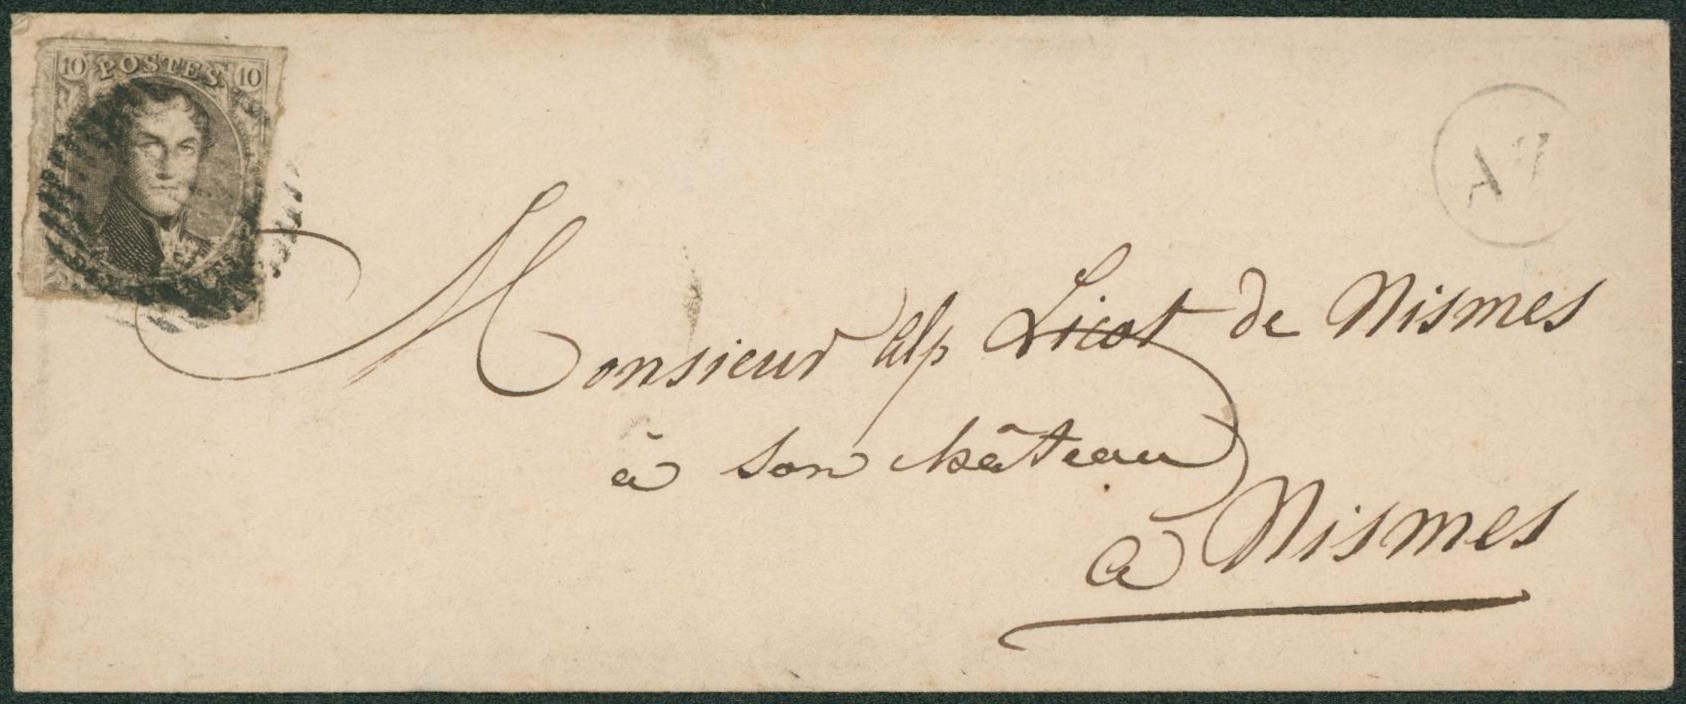 10 POSTES 10
A
Monsieur Alp Licot de Nismes
à son château
à Nismes